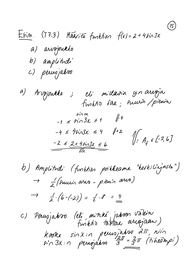 15
Esim (T23) Määritä funktion f(x) = 2+4sin3x
a) arvojoukko
b) amplitudi
c) perusjakso
a) Arvojoukko ; eli millaisia y:n arvoja
funktio saa ; suurin/pienin
-1 ≤ sin3x ≤ 1 ‖·4
-4 ≤ 4sin3x ≤ 4 ‖+2
-2 ≤ 2+4sin3x ≤ 6
V: A_f ∈ [-2,6]
b) Amplitudi (funktion poikkeama "keskilinjasta")
→ ½(suurin arvo - pienin arvo)
→ ½(6-(-2)) = ½·8 = 4
c) Perusjakso (eli minkä jakson välein
funktio toistaa arvojaan)
koska sinx:n perusjakso 2π, niin
sin3x:n perusjakso 2π/3